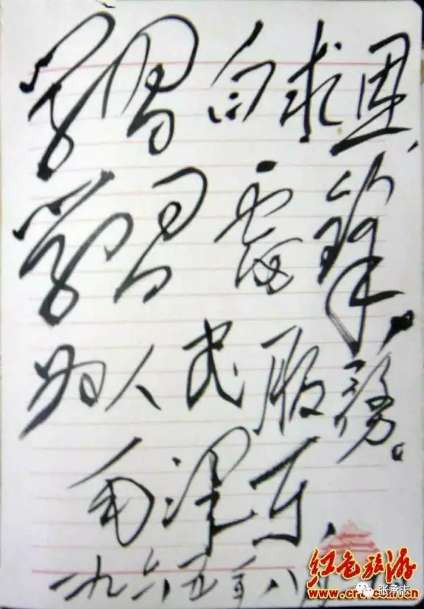 学习白求恩,
学习雷锋,
为人民服務。
毛泽东,
一九六五年八
红色旅游
www.crt.com.cn